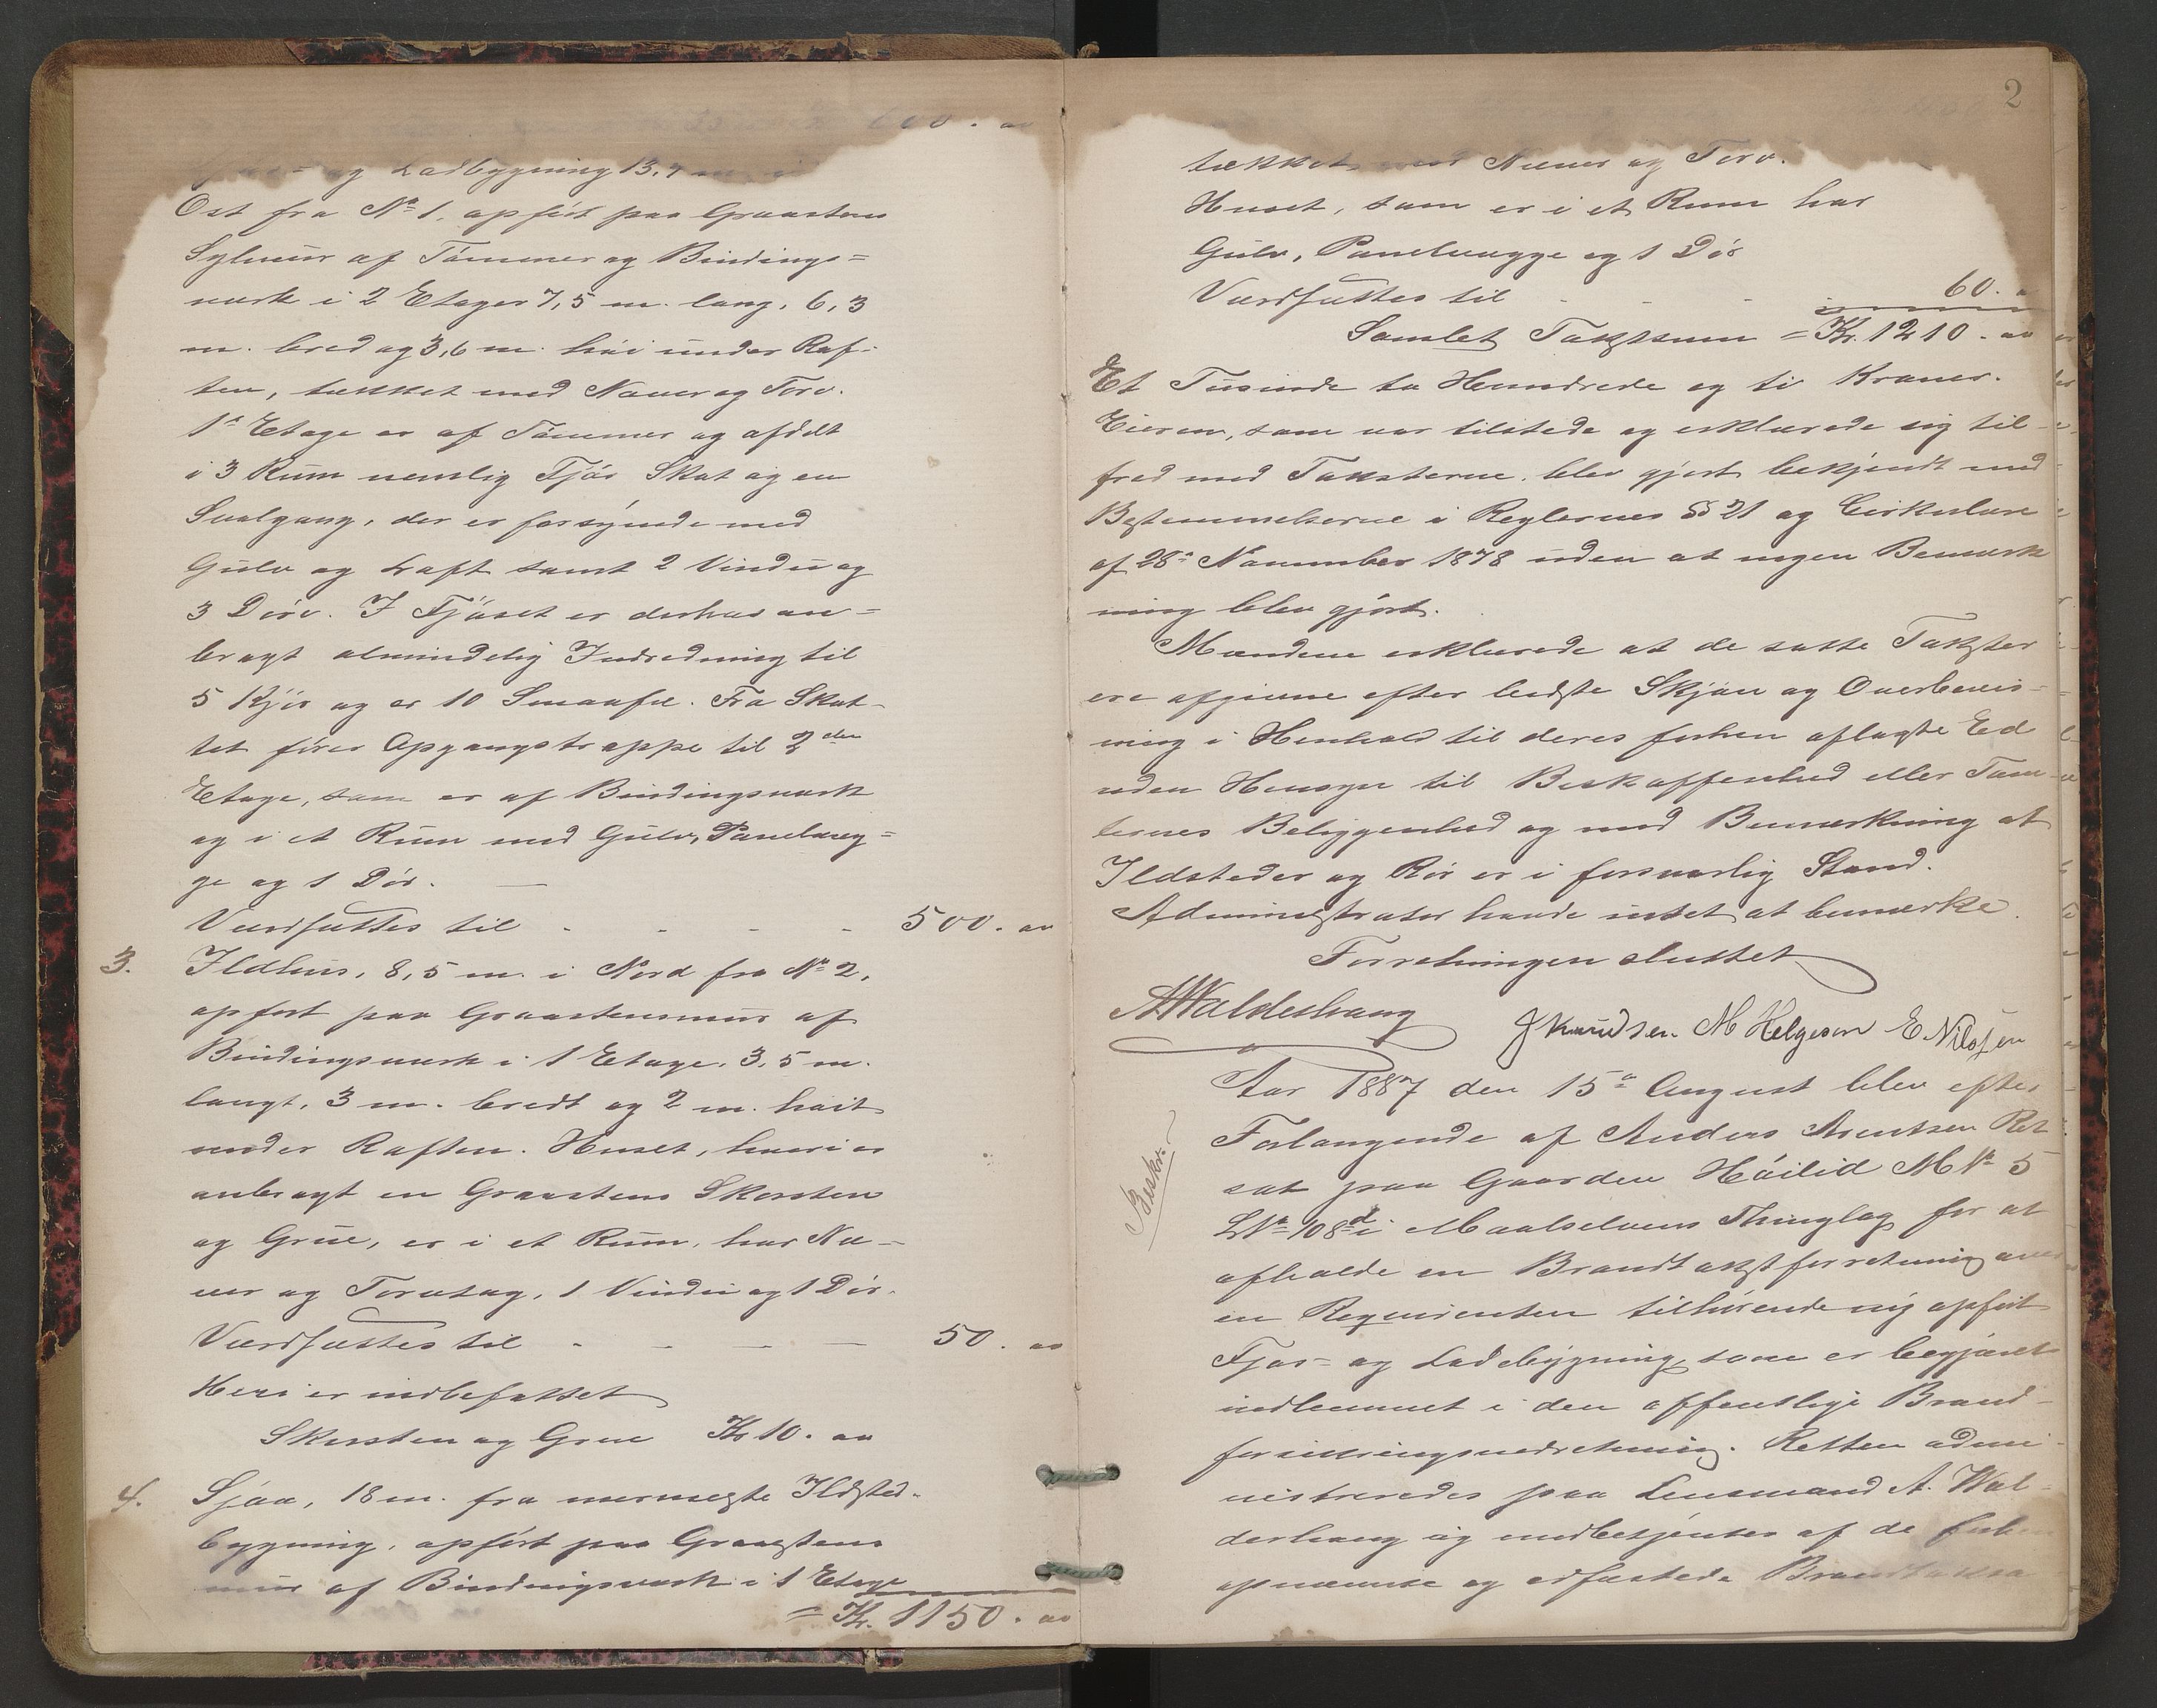 600.
og Ladbygning 13,4 m. i
Ost fra No 1, opført paa Graastens
Sylmur af Tømmer og Bindings=
værk i 2 Etager 7,5 m. lang, 6,3
m. bred og 3,6 m. høi under Raf-
ten, tækket med Næver og Torv.
1ste Etage er af Tømmer og afdelt
i 3 Rum nemlig Fjøs Skot og en
Svalgang, der er forsynede med
Gulv og Loft samt 2 Vindu og
3 Døre. I Fjøset er derhos an=
bragt almindelig Indredning til
5 Kjør og er 10 Smaafæ. Fra Skot-
tet fører Opgangstrappe til 2den
Etage, som er af Bindingsværk
og i et Rum med Gulv, Panelvæg=
ge og 1 Dør.
Værdsattes til - - - - 500.
3. Ildhus, 8,5 m. i Nord fra No 2,
opført paa Graastensmur af
Bindingsværk i 1 Etage, 3,5 m.
langt, 3 m. bredt og 2 m. høit
under Raften. Huset, hvori er
anbragt en Graastens Skorsten
og Grue, er i et Rum, har Næ-
ver og Torvtag, 1 Vindu og 1 Dør.
Værdsattes til - - - - 50.
Heri er indbefattet
Skorsten og Grue Kr 10.
4. Sjaa, 18 m. fra nærmeste Ildsted-
bygning, opført paa Graastens
mur af Bindingsværk i 1 Etage
= Kr. 1150.
2
tækket med Næver og Torv.
Huset, som er i et Rum har
Gulv, Panelvægge og 1 Dør
Værdsattes til - - - 60.
Samlet Taxtsum = Kr. 1210.
Et Tusinde to Hundrede og ti Kroner.
Eieren, som var tilstede og erklærede sig til-
freds med Taxterne, blev gjort bekjendt med
Bestemmelserne i Reglernes § 21 og Cirkulære
af 28de November 1878 uden at nogen Bemærk
ning blev gjort.
Mændene erklærede at de satte Takster
ere afgivne efter bedste Skjøn og Overbevis-
ning i Henhold til deres forhen aflagte Ed
uden Hensyn til Beskaffenhed eller Tom-
ternes Beliggenhed og med Bemærkning at
Ildsteder og Rør er i forsvarlig Stand.
Administrator havde intet at bemærke.
Forretningen sluttet
A Walderhaug J Knudsen M Helgesen E. Nilsen
Aar 1887 den 15de August blev efter
Forlangende af Anders Arentsen Ret
sat paa Gaarden Høilid M No 5
LNo 108d i Maalselvens Thinglag for at
afholde en Brandtakstforretning over
en Requirenten tilhørende nyopført
Fjøs- og Ladebygning, som er begjæret
indlemmet i den offentlige Brand-
forsikringsindretning. Retten admi-
nistreredes paa Lensmand A. Wal-
derhaug og medbetjentes af de forhen
opnævnte og edfæstede